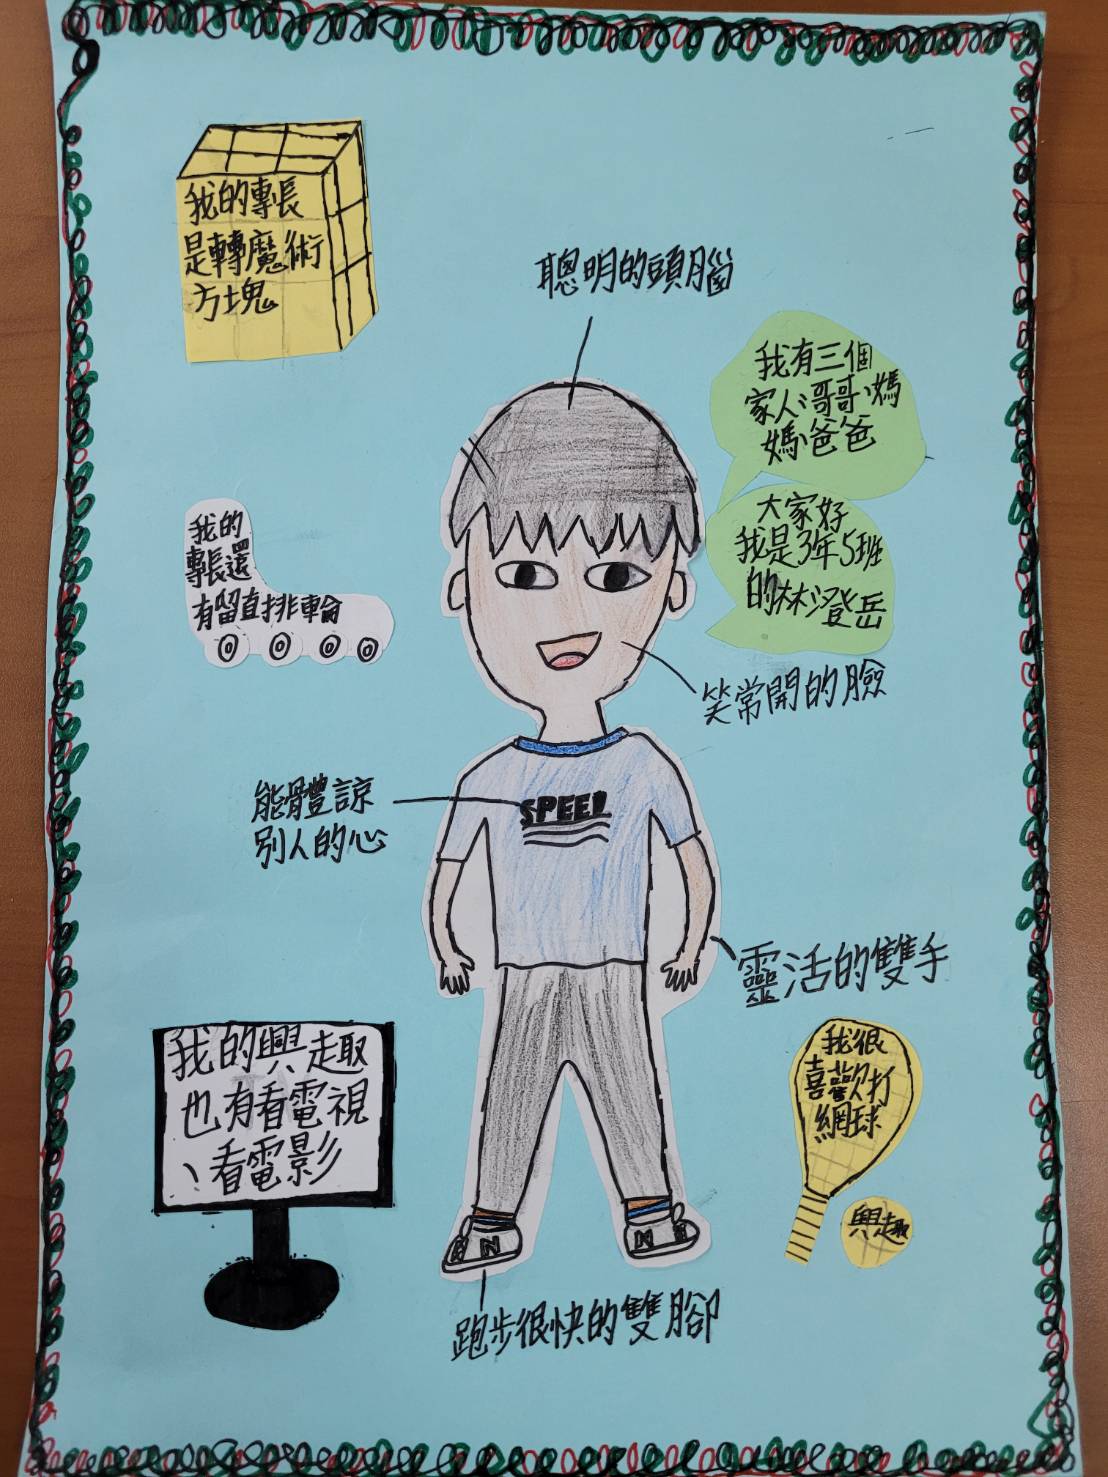 我的專長
是轉魔術
方塊
聰明的頭腦
我有三個
家人、哥哥、媽
媽、爸爸
大家好
我是3年5班
的林澄岳
我的
專長還
有留直排輪
笑常開的臉
能體諒
別人的心
SPEED
靈活的雙手
我的興趣
也有看電視
、看電影
我很
喜歡打
網球
興趣
N
N
跑步很快的雙腳